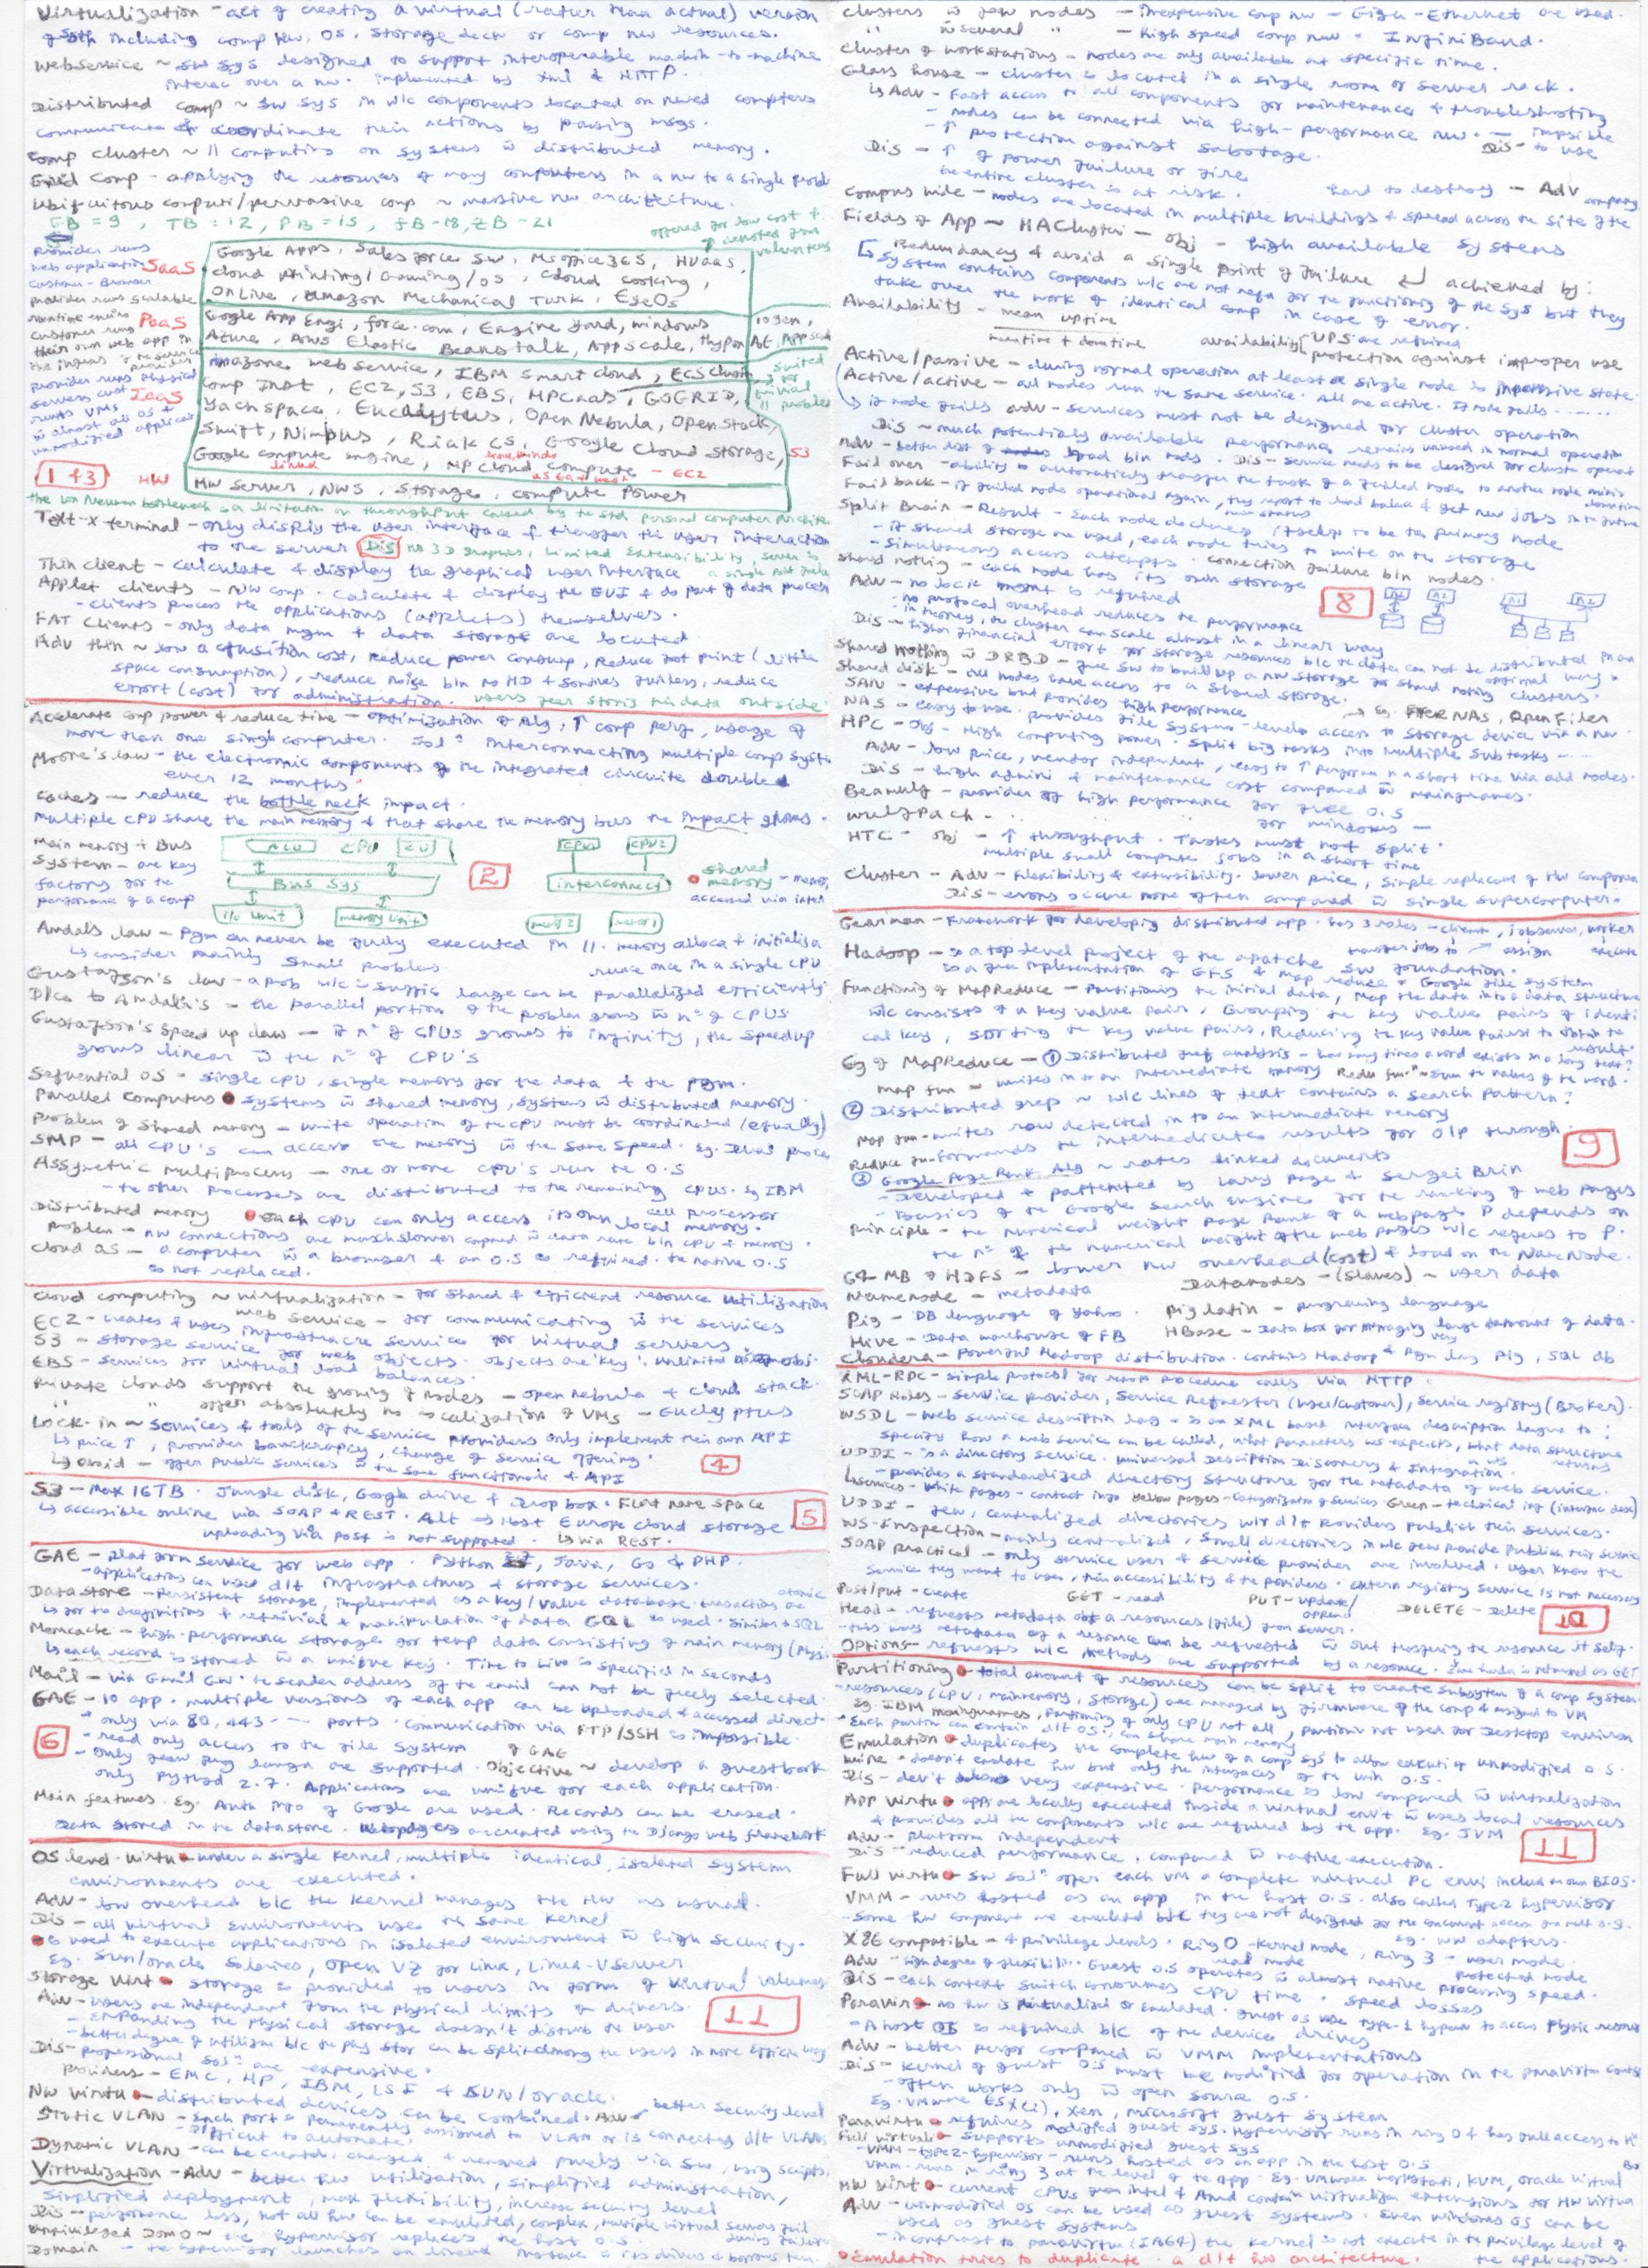 Virtualization - act of creating a virtual (rather than actual) version
of sth including comp hw, OS, storage device or comp nw resources.
Webservice ~ sw sys designed to support interoperable machin-to-machine
interac over a nw. implemented by xml & HTTP.
Distributed comp ~ sw sys in w/c components located on nwed compters
communicate & coordinate their actions by passing msgs.
Comp cluster ~ // computing on systems w distributed memory.
Grid Comp - applying the resources of many computers in a nw to a single probl
Ubiquitous computi/pervasive comp ~ massive new architecture.
EB = 9, TB = 12, PB = 15, EB-18, ZB-21
offered for low cost &
Provider runs
web application SaaS
Customer - Browser
Google Apps, Salesforce SW, MSoffice365, HUaaS,
cloud printing/Gaming/OS, cloud cooking,
OnLive, Amazon Mechanical Turk, EyeOS
provider runs scalable
runtime enviro PaaS
customer runs
their own web app in
Google App Engi, force.com, Engine Yard, windows
Azure, AWS Elastic Beanstalk, AppScale,
provider runs physical
servers cust IaaS
runs VMs
w almost all OS &
unmodified applicat
Amazone web service, IBM Smart cloud, EC2 Cluster
Comp Inst, EC2, S3, EBS, HPCaaS, GOGRID,
Rackspace, Eucalyptus, Open Nebula, OpenStack,
Swift, Nimbus, Riak CS, Google Cloud Storage, S3
Google compute engine, HP cloud compute - EC2
1 & 3 HW
HW Server, NWS, Storage, compute Power
the von Neumann bottleneck is a limitation on throughput caused by the std personal computer archite
Text-X terminal - only display the user interface & transfer the user interaction
to the server Dis no 3D graphics, limited Extensibility, server is
a single point
Thin client - calculate & display the graphical user interface
Applet clients - NW comp. calculate & display the GUI & do part of data process
- clients process the applications (applets) themselves.
FAT clients - only data mgm & data storage are located.
Adv thin ~ low acquisition cost, reduce power consump, reduce foot print (little
space consumption), reduce noise b/c no HD & sometimes fanless, reduce
effort (cost) for administration. users fear storing their data outside
Accelerate comp power & reduce time - optimization of Alg, ↑ comp perf, usage of
more than one single computer. Solⁿ interconnecting multiple comp syst
Moore's law - the electronic components of the integrated circuite double
ever 12 months.
Caches - reduce the bottle neck impact.
Multiple CPU share the main memory & that share the memory bus the impact grows.
Main memory & Bus
System - are key
factors for the
performance of a comp
ALU CPU CU
Bus Sys
I/O Unit memory Unit
2
CPU1 CPU2
interconnect
mem2 mem1
shared
memory - memory
accessed via inter
Amdals law - Pgm can never be fully executed in //. memory alloca & initializa
↳ consider mainly small problems runs once in a single CPU
Gustafson's law - a prob w/c is suffic large can be parallelized efficiently
Dice to Amdahl's - the parallel portion of the problem grows w nº of CPUS
Gustafson's speed up law - if nº of CPUs grows to infinity, the speedup
grows linear w the nº of CPU's
Sequential OS - single CPU, single memory for the data & the pgm.
Parallel Computers • systems w shared memory, systems w distributed memory.
Problem of shared memory - write operation of the CPU must be coordinated (equally)
SMP - all CPU's can access the memory w the same speed. Eg. Dual proce
Assymetric Multiprocess - one or more CPU's run the O.S
- the other processes are distributed to the remaining CPUs. eg IBM
cell processor
Distributed memory • each CPU can only access its own local memory.
Problem - nw connections are much slower compared w data rate b/n CPU & memory.
Cloud OS - a computer w a browser & an O.S is required. the native O.S
is not replaced.
Cloud computing ~ virtualization - for shared & efficient resource utilization
web service - for communicating w the services
EC2 - creates & uses infrastructure services for virtual servers
S3 - storage service for web objects. objects are key. unlimited nº of obj.
EBS - services for virtual load balances.
Private clouds support the growing of nodes - open nebula & cloud stack
" " offer absolutely no scalization of VMs - Eucalyptus
Lock-in ~ services & tools of the service providers only implement their own API
↳ price ↑, provider bankrupcy, change of service offering.
↳ avoid - offer public services w the same functionaric & API
4
S3 - Max 16TB. Jungle disk, Google drive & Drop box. Flat name space
↳ accessible online via SOAP & REST. Alt → Host Europe cloud storage
uploading via post is not supported. ↳ via REST.
5
GAE - platform service for web app. Python, Java, Go & PHP.
- applications can used d/t infrastructures & storage services.
Datastore - persistent storage, implemented as a key/value database. transactions are atomic
↳ for the definitions & retrivial & manipulation of data GQL is used. Similar to SQL
Memcache - high-performance storage for temp data consisting of main memory
↳ each record is stored w a unique key. Time to Live is specified in seconds
Mail - via Gmail GW. the sender address of the email can not be freely selected.
GAE - 10 app. multiple versions of each app can be uploaded & accessed direct.
* only via 80, 443 --- ports. communication via FTP/SSH is impossible.
6
- read only access to the file system
- only few prg langs are supported. Objective of GAE ~ develop a guestbook
only Python 2.7. Applications are unique for each application.
Main features. Eg. Auth info of Google are used. Records can be erased.
Data stored in the datastore. Webpages are created using the Django web framework
OS level virtu • under a single kernel, multiple identical, isolated system
environments are executed.
Adv - low overhead b/c the kernel manages the HW as usual.
Dis - all virtual environments use the same kernel
• is used to execute applications in isolated environment w high security.
Eg. Sun/oracle Solaries, open VZ for Linux, Linux-VServer
Storage virt • storage is provided to users in form of virtual volumes
Adv - users are independent from the physical limits of drivers.
- expanding the physical storage doesn't disturb the user
- better degree of utilization b/c the phy stor can be split among the users in more efficie way
11
Dis - professional solⁿ are expensive.
Providers - EMC, HP, IBM, LSI & SUN/oracle.
NW virtu • distributed devices can be combined. Adv - better security level
Static VLAN - Each port is permanently assigned to VLAN or is connected d/t VLANs
- Difficult to automate.
Dynamic VLAN - can be created, changed & removed purely via SW, using scripts.
Virtualization - Adv - better hw utilization, simplified administration,
simplified deployment, max flexibility, increase security level
Dis - performance loss, not all hw can be emulated, complex, multiple virtual servers fail
unprivileged DomO ~ the hypervisor replaces the host O.S.
Domain - the hypervisor launches
clusters w few nodes - inexpensive comp nw - Giga-Ethernet are used.
" w several " - high speed comp nw - InfiniBand.
Cluster of workstations - nodes are only available at specific time.
Glass house - cluster is located in a single room or server rack.
↳ Adv - Fast access to all components for maintenance & troubleshooting
- nodes can be connected via high-performance nw.
- ↑ protection against sabotage.
Dis - ↑ of power failure or fire
the entire cluster is at risk.
Dis - impsible to use
hard to destroy - Adv
Campus wide - nodes are located in multiple buildings & spread across the site of the company
Fields of App ~ HACluster - obj - high available systems
↳ Redundancy & avoid a single point of failure ↵ achieved by:
system contains components w/c are not requ for the functionig of the sys but they
take over the work of identical comp in case of error.
Availability - mean uptime
muptime + downtime
availability UPS are required
protection against improper use
Active/passive - during normal operation at least a single node is in passive state.
Active/active - all nodes run the same service. All are active. If node fails ......
if node fails adv - services must not be designed for cluster operation
Dis ~ much potentially available performance remains unused in normal operation
Adv - better dist of load b/n nods. Dis - service needs to be designed for cluste operat
Fail over - ability to automatically transfer the task of a failed nodes to another node
Fail back - if failed node operational again, they report to load balance & get new jobs in the future
Split Brain - Result - Each node declares itself to be the primary node
- if shared storage are used, each node tries to write on the storage
- simultaneous access attempts. connection failure b/n nodes.
Shared nothing - each node has its own storage
Adv - no lock mgmt is required
- no protocol overhead reduces the performance
- in theory, the cluster can scale almost in a linear way
8
Dis - higher financial effort for storage resources b/c the data can not be distributed in an optimal way.
Shared nothing w DRBD - free SW to build up a nw storage for shared nothing clusters.
Shared disk - all nodes have access to a shared storage.
SAN - expensive but provides high performance
NAS - easy to use. provides file system-level access to storage device via a nw. → eg. FreeNAS, OpenFiler
HPC - obj - High computing power. Split big tasks into multiple subtasks ---
Adv - low price, vendor independent, easy to ↑ perform in a short time via add nodes.
Dis - high admini & maintenance cost compared w mainframes.
Beowulf - provider of high performance for free O.S
Wulfpack - .. for windows -
HTC - obj - ↑ throughput. Tasks must not split.
multiple small compute jobs in a short time
Cluster - Adv - flexibility & extensibility. lower price, simple replacem of HW componen
Dis - errors occure more often compared w single supercomputer.
Gearman - Framework for developing distributed app. has 3 roles - client, jobserver, worker
transfer jobs to assign execute
Hadoop - is a top level project of the apatche SW foundation.
is a free implementation of GFS & Map reduce & Google file system
Functionig of MapReduce - Partitioning the initial data, Map the data into a data structure
w/c consists of a key value pair, Grouping the key values pairs of identi
cal key, sorting the key value pairs, Reducing the key value pairs to obtain the result.
Eg of MapReduce - ① Distributed freq analysis - how many times a word exists in a long text?
Map fun - writes into an intermediate memory Redu fun - sum the values of the word.
② Distributed grep ~ w/c lines of text contains a search pattern?
Map fun - writes row detected in to an intermediate memory
Reduce fu - forwards the intermediates results for O/P through
③ Google Page Rank Alg ~ rates linked documents
9
- Developed & pattented by Larry Page & Sergei Brin
- Basics of the Google search engines for the ranking of web pages
Principle - the numerical weight page Rank of a webpages P depends on
the nº of the numerical weight of the web pages w/c referes to P.
64 MB of HDFS - lower nw overhead (cost) & load on the NameNode.
Namenode - metadata Datanodes - (slaves) ~ user data
Pig - DB language of yahoo. Pig latin - programing language
Hive - Data warehouse of FB HBase - Data box for managing very large damount of data.
Cloudera - Powerful Hadoop distribution. contains Hadoop & Pgm lag Pig, SQL db
XML-RPC - simple protocol for remote procedure calls via HTTP.
SOAP Roles - service provider, Service Requester (user/customer), Service registry (Broker).
WSDL - web service description lang - is an XML based interface description langua to:
specify how a web service can be called, what parameters it expects, what data structure
UDDI - is a directory service. Universal Description Discovery & Integration. returns
- provides a standardized directory structure for the metadata of web service.
↳ services - White pages - contact info Yellow pages - categorization of services Green - technical inf (interface desc)
UDDI - few, centralized directories w/c d/t providers publish their services.
WS-Inspection - mainly centralized, small directories in w/c few provide publish their service
SOAP practical - only service user & service provider are involved. user know the
service they want to use, their accessibility & the providers. extern registry service is not necessary
Post/put - create GET - read PUT - update/append DELETE - delete
10
Head - requests metadata of a resources (file) from server.
- this way metadata of a resource can be requested w out trasfering the resource it self.
Options - requests w/c methods are supported by a resource.
Partitioning • total amount of resources can be split to create subsytem of a comp system.
- resources (CPU, main memory, storage) are managed by firmware of the comp & assigned to VM
Eg. IBM mainframes, Partitioning of only CPU not all, partition not used for Desktop environ
- Each partition can contain d/t OS, can share main memory
Emulation • duplicates the complete hw of a comp sys to allow executi of unmodified O.S.
Wine - doesn't emulate hw but only the interfaces of the win O.S.
Dis - dev't very expensive. performance is low compared w virtualization
App virtu • app are locally executed inside a virtual env't w uses local resources
& provides all the components w/c are required by the app. Eg. JVM
Adv - platform independent
Dis - reduced performance, compared w native execution.
11
Full virtu • SW solⁿ offer each VM a complete virtual PC envi includ an own BIOS.
VMM - runs hosted as an app in the host O.S. also called Type-2 hypervisor
- Some hw component are emulated b/c they are not designed for the concurrent access
Eg. NW adapters.
X86 compatible - 4 privilege levels. Ring 0 - kernel mode, Ring 3 - user mode.
Adv - high degree of flexibility. Guest O.S operates w almost native processing speed.
Dis - each context switch consumes CPU time. speed losses
Paravirt • no hw is virtualised or emulated. guest OS use type-1 hyperv to access physic resourc
- A host OS is required b/c of the device drives
Adv - better perfor compared w VMM implementations
Dis - Kernel of guest O.S must be modified for operation in the paravirtu contex
- often works only w open source O.S.
Eg. VMware ESX(i), Xen, microsoft guest system
Paravirtu • requires modified guest sys. Hypervisor runs in ring 0 & has full access to H
Full virtual • supports unmodified guest sys
- VMM - type-2-hypervisor - runs hosted as an app in the host O.S
- VMM - runs in ring 3 at the level of the app. Eg. VMware workstati, KVM, oracle Virtual Bo
HW Virt • current CPUs from intel & Amd contain virtualiza extensions for HW virtua
Adv - unmodified OS can be used as guest systems. Even windows OS can be
used as guest systems
- in contrast to paravirtu (IA64) the kernel is not execute in the privilege level of
the applications.
• Emulation tries to duplicate a d/t hw architecture.